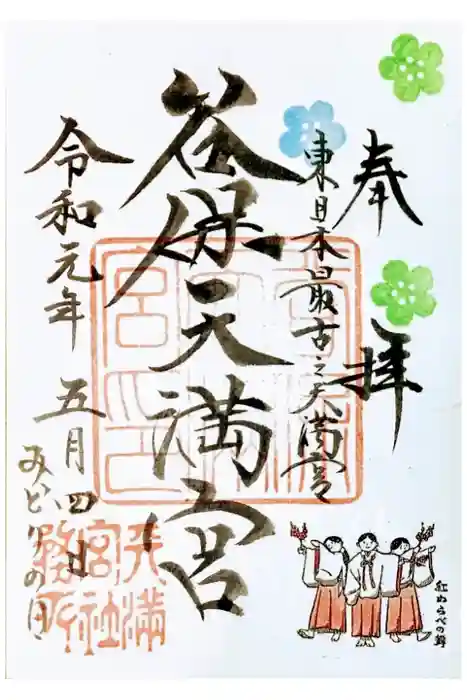 奉拝
東日本最古之天満宮
谷保天満宮
令和元年五月四日
みどりの日
天満
宮社
務所
紅わらべの舞